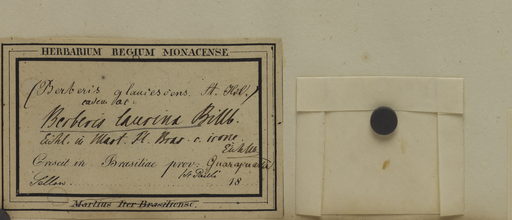 HERBARIUM REGIUM MONACENSE
(Berberis glaucescens. St. Hil.)
Berberis laurina Billb.
Eichl. in Mart. Fl. Bras. c. icone.
Eichler
Crescit in Brasiliae prov.
Sellow. 18
Martius Iter Brasiliense.